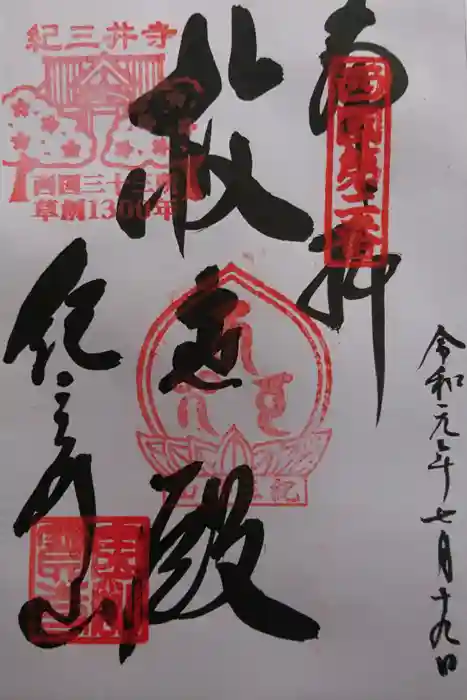 奉拝
西国第二番
令和元年七月十九日
救世殿
紀三井寺
西国三十三所
草創1300年
紀三井山